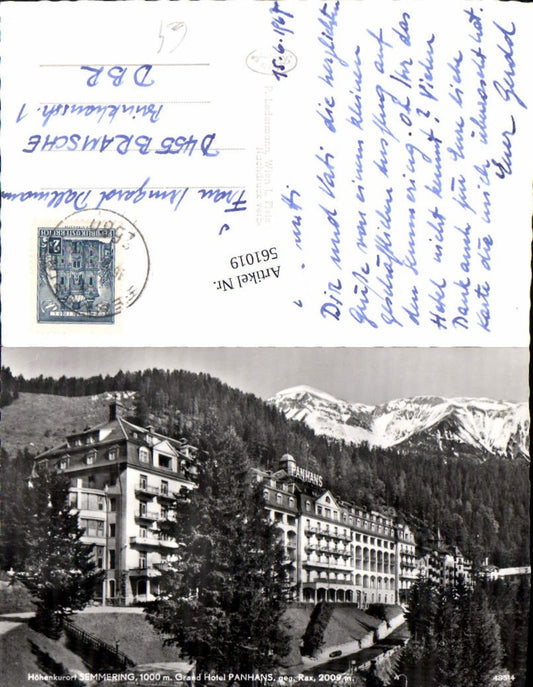 15.6.1967
Mutti
Dir und Vati die herzlichsten
Grüße von einem kleinen
geschäftlichen Ausflug auf
den Semmering. Ob Ihr das
Hotel nicht kennt? Vielen
Dank auch für Eure liebe
Karte die mich überrascht hat.
Euer Gerold
Frau Irmgard Dallmann
D 455 BRAMSCHE
DBR
64
REPUBLIK ÖSTERREICH
Artikel Nr.
561019
PANHANS
Höhenkurort SEMMERING, 1000 m. Grand Hotel PANHANS, geg. Rax, 2009 m.